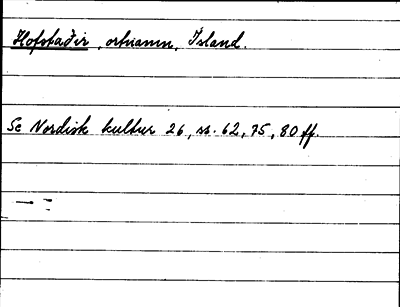 Hofstaðir, ortnamn, Ísland.
Se Nordisk kultur 26, ss. 62, 75, 80 ff.